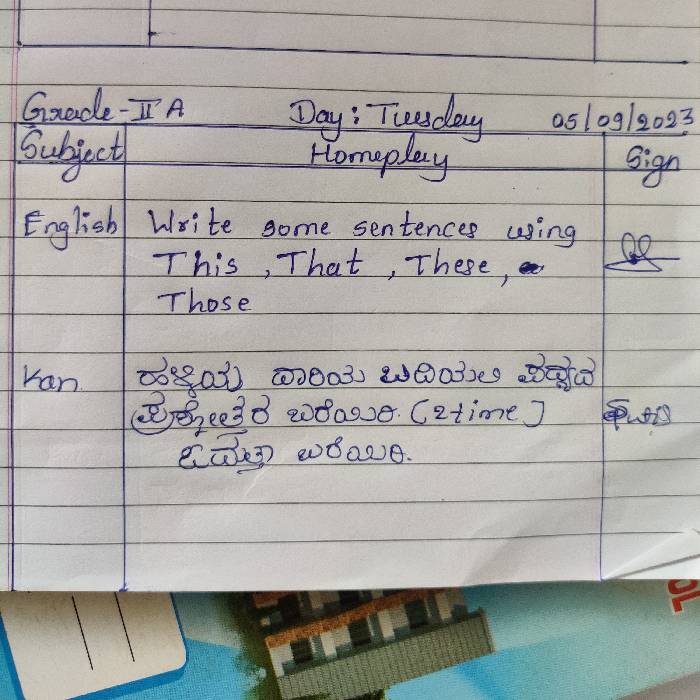 Grade - II A Day : Tuesday 05/09/2023
Subject Homeplay Sign
English Write some sentences using
This , That , These ,
Those
Kan ಹಳ್ಳಿಯ ದಾರಿಯ ಬದಿಯಲಿ ಪದ್ಯದ
ಪ್ರಶ್ನೋತ್ತರ ಬರೆಯಿರಿ. (2 time)
ಬರೆಯಿರಿ.
OL